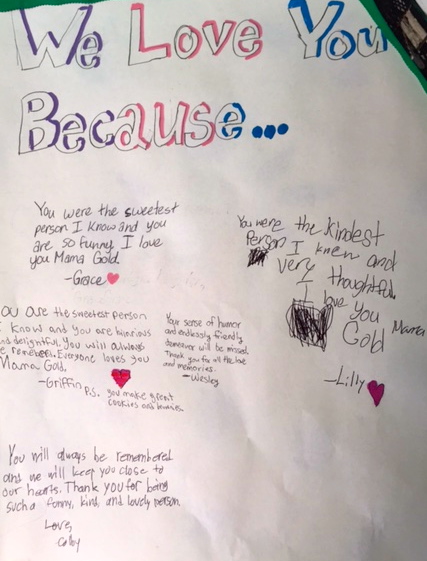 We Love You
Because...
You were the sweetest
person I know and you
are so funny. I love
you Mama Gold.
-Grace
You were the kindest
Person I knew and
very thoughtful
I love you
Mama
Gold
-Lilly
You are the sweetest person
I know and you are hilarious
and delightful. You will always
be remeberi. Everyone loves you
Mama Gold.
-Griffin
P.S. you make great
cookies and brownies
Your sense of humor
and endlessly friendly
demeanor will be missed.
Thank you for all the love
and memories.
-Wesley
You will always be remembered
and we will keep you close to
our hearts. Thank you for being
such a funny, kind, and lovely person.
Love,
Colby